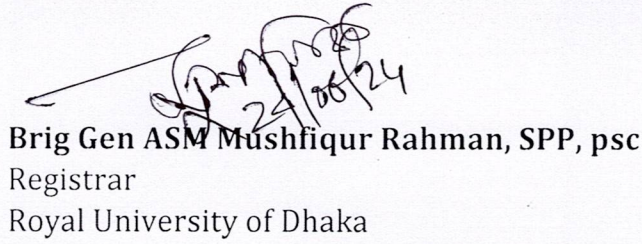 24/06/24
Brig Gen ASM Mushfiqur Rahman, SPP, psc
Registrar
Royal University of Dhaka